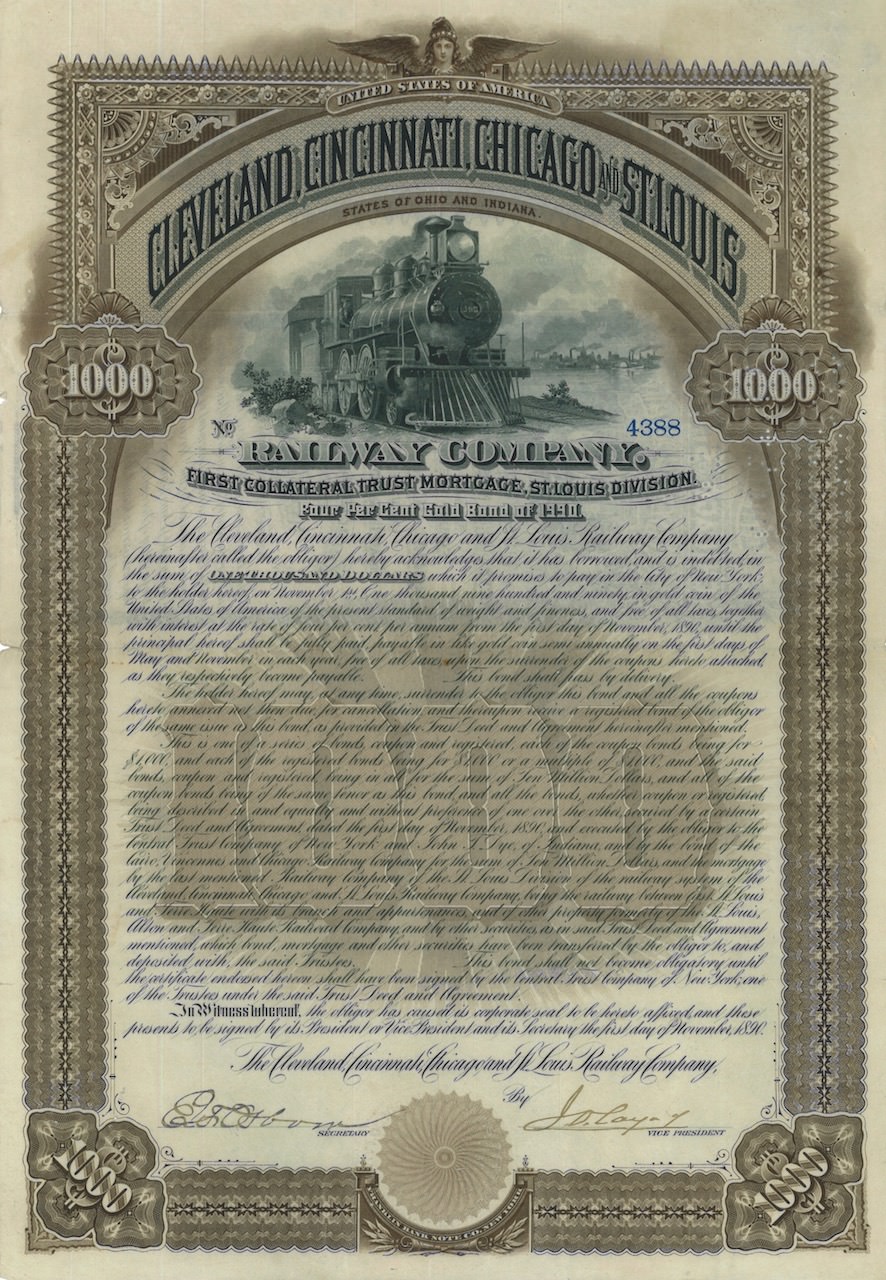 UNITED STATES OF AMERICA
CLEVELAND, CINCINNATI, CHICAGO AND ST. LOUIS
STATES OF OHIO AND INDIANA.
$1000 $1000
No. 4388
RAILWAY COMPANY.
FIRST COLLATERAL TRUST MORTGAGE, ST. LOUIS DIVISION.
Four Per Cent Gold Bond of 1990.
The Cleveland, Cincinnati, Chicago and St. Louis Railway Company
(hereinafter called the obligor) hereby acknowledges that it has borrowed, and is indebted, in
the sum of ONE THOUSAND DOLLARS which it promises to pay in the City of New York,
to the holder hereof, on November 1st, One thousand nine hundred and ninety, in gold coin of the
United States of America of the present standard of weight and fineness, and free of all taxes, together
with interest at the rate of four per cent per annum from the first day of November, 1890, until the
principal hereof shall be fully paid, payable in like gold coin semi annually on the first days of
May and November in each year, free of all taxes, upon the surrender of the coupons hereto attached,
as they respectively become payable. This bond shall pass by delivery.
The holder hereof may, at any time, surrender to the obligor this bond and all the coupons
hereto annexed not then due, for cancellation, and thereupon receive a registered bond of the obligor
of the same issue as this bond, as provided in the Trust Deed and Agreement hereinafter mentioned.
This is one of a series of bonds, coupon and registered, each of the coupon bonds being for
$1,000, and each of the registered bonds being for or a multiple of and the said
bonds, coupon and registered, being in all for the sum of Ten Million Dollars, and all of the
coupon bonds being of the same tenor as this bond, and all the bonds, whether coupon or registered,
being described in and equally and without preference of one over the other, secured by a certain
Trust Deed and Agreement, dated the first day of November, 1890, and executed by the obligor to the
Central Trust Company of New York and John T. Dye, of Indiana, and by the bond of the
Cairo, Vincennes and Chicago Railway Company for the sum of Ten Million Dollars, and the mortgage
by the last mentioned Railway Company of the St. Louis Division of the railway system of the
Cleveland, Cincinnati, Chicago and St. Louis Railway Company, being the railway between East St. Louis
and Terre Haute with its branch and appurtenances, and of other property formerly of the St. Louis,
Alton and Terre Haute Railroad Company, and by other securities, as in said Trust Deed and Agreement
mentioned, which bond, mortgage and other securities have been transferred by the obligor to, and
deposited with, the said Trustees. This bond shall not become obligatory until
the certificate endorsed hereon shall have been signed by the Central Trust Company of New York, one
of the Trustees under the said Trust Deed and Agreement.
In Witness whereof, the obligor has caused its corporate seal to be hereto affixed, and these
presents to be signed by its President or Vice President and its Secretary the first day of November, 1890.
The Cleveland, Cincinnati, Chicago and St. Louis Railway Company,
By
SECRETARY VICE PRESIDENT
$1000 $1000
FRANKLIN BANK NOTE CO. NEW YORK